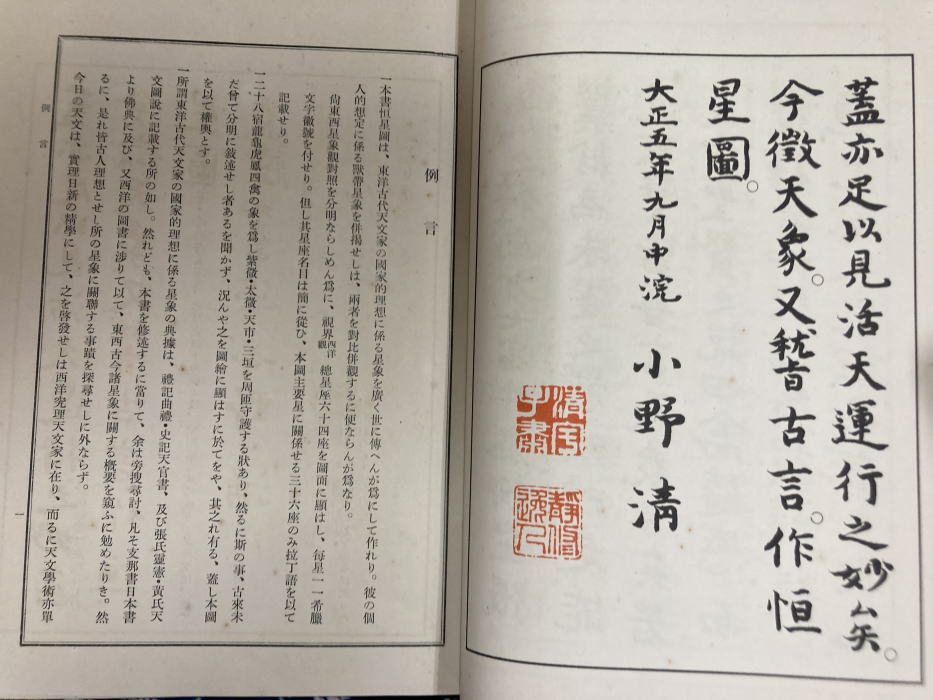 蓋亦足以見活天運行之妙矣。
今徵天象。又稽古言。作恒
星圖。
大正五年九月中浣 小野清
清字子肅
靜修逸人
例言
一本書恒星圖は、東洋古代天文家の國家的理想に係る星象を廣く世に傳へんが爲にして作れり。彼の個
人的想定に係る獸帶星象を併揭せしは、兩者を對比併觀するに便ならんが爲なり。
尙東西星象觀對照を分明ならしめん爲に、視界西洋觀總星座六十四座を圖面に顯はし、每星一一希臘
文字徽號を付せり。但し其星座名目は簡に從ひ、本圖主要星に關係せる三十六座のみ拉丁語を以て
記載せり。
一二十八宿龍龜虎鳳四禽の象を爲し紫微・太微・天市・三垣を周匝守護する狀あり、然るに斯の事、古來未
だ曾て分明に敍述せし者あるを聞かず、況んや之を圖繪に顯はすに於てをや、其之れ有る、蓋し本圖
を以て權輿とす。
一所謂東洋古代天文家の國家的理想に係る星象の典據は、禮記曲禮・史記天官書、及び張氏靈憲・黃氏天
文圖說に記載する所の如し。然れども、本書を修述するに當りて、余は旁搜尋討、凡そ支那書日本書
より佛典に及び、又西洋の圖書に涉りて以て、東西古今諸星象に關する槪要を窺ふに勉めたりき。然
るに、是れ皆古人理想とせし所の星象に關聯する事蹟を探尋せしに外ならず。
今日の天文は、實理日新の精學にして、之を啓發せしは西洋究理天文家に在り、而るに天文學術亦單
例言
一